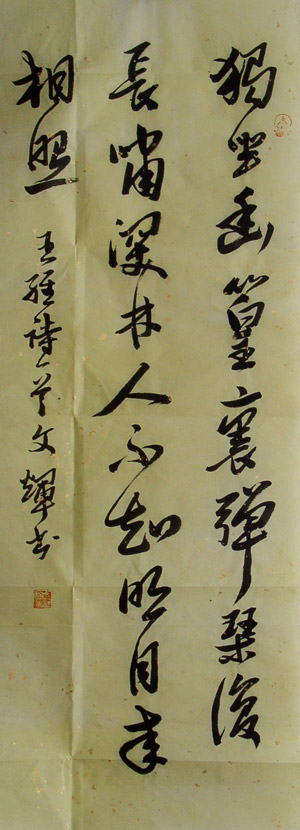 獨坐幽篁裏彈琴復
長嘯深林人不知明月來
相照
王維詩一首文輝書